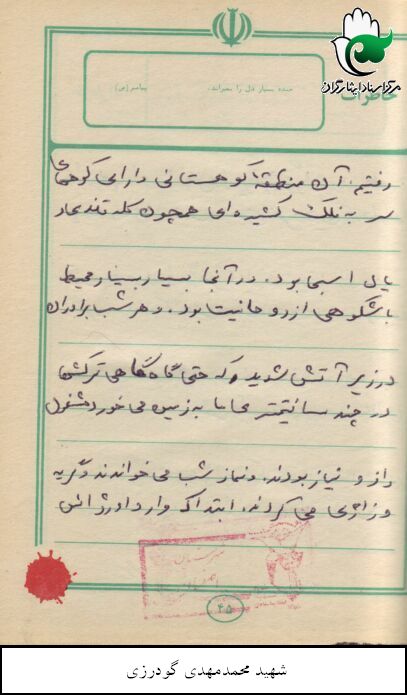 مرکز اسناد ایثارگران
خاطرات
خنده بسیار دل را بمیراند. پیامبر (ص)
رفتیم. آن منطقه کوهستانی دارای کوههای
سر به فلک کشیده‌ای همچون کله قندهار
یال اسبا بود. در آنجا بسیار بسیار محیط
باشکوهی از روحانیت بود. و هر شب برادران
در زیر آتش شدید که حتی گاه گاهی ترکشها
در چند سانتیمتری ما به زمین می خورد مشغول
راز و نیاز بودند. و نماز شب می خواندند و گریه
و زاری می کردند. ابتدا که وارد اورژانس
۴۵
شهید محمدمهدی گودرزی